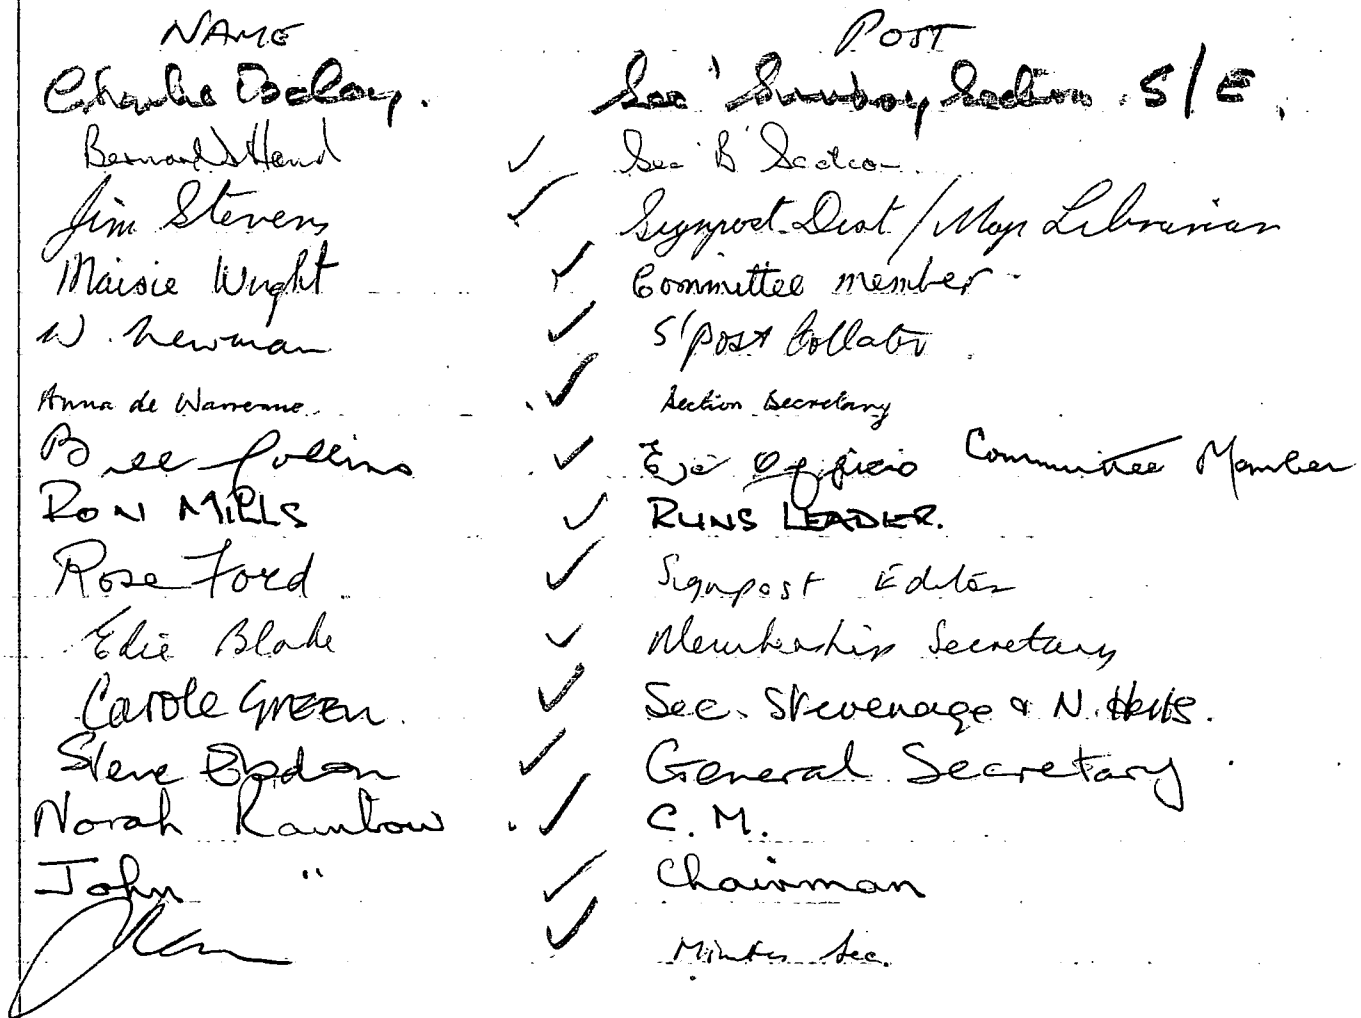 NAME POST
Charlie Sec' Sunday Section . S/E.
Bernard Hand ✓ Sec 'B' Section
Jim Stevens ✓ Signpost Dist / Map Librarian
Maisie Wright ✓ Committee member
W. Newman ✓ S'post Collator
Anna de Warrenne ✓ Section Secretary
Bill Collins ✓ Ex Officio Committee Member
RON MILLS ✓ RUNS LEADER.
Rose Ford ✓ Signpost Editor
Edie Blade ✓ Membership Secretary
Carole GREEN ✓ Sec. Stevenage & N. Herts.
Steve ✓ General Secretary
Norah Rainbow ✓ C. M.
John " ✓ Chairman
✓ Minutes Sec.